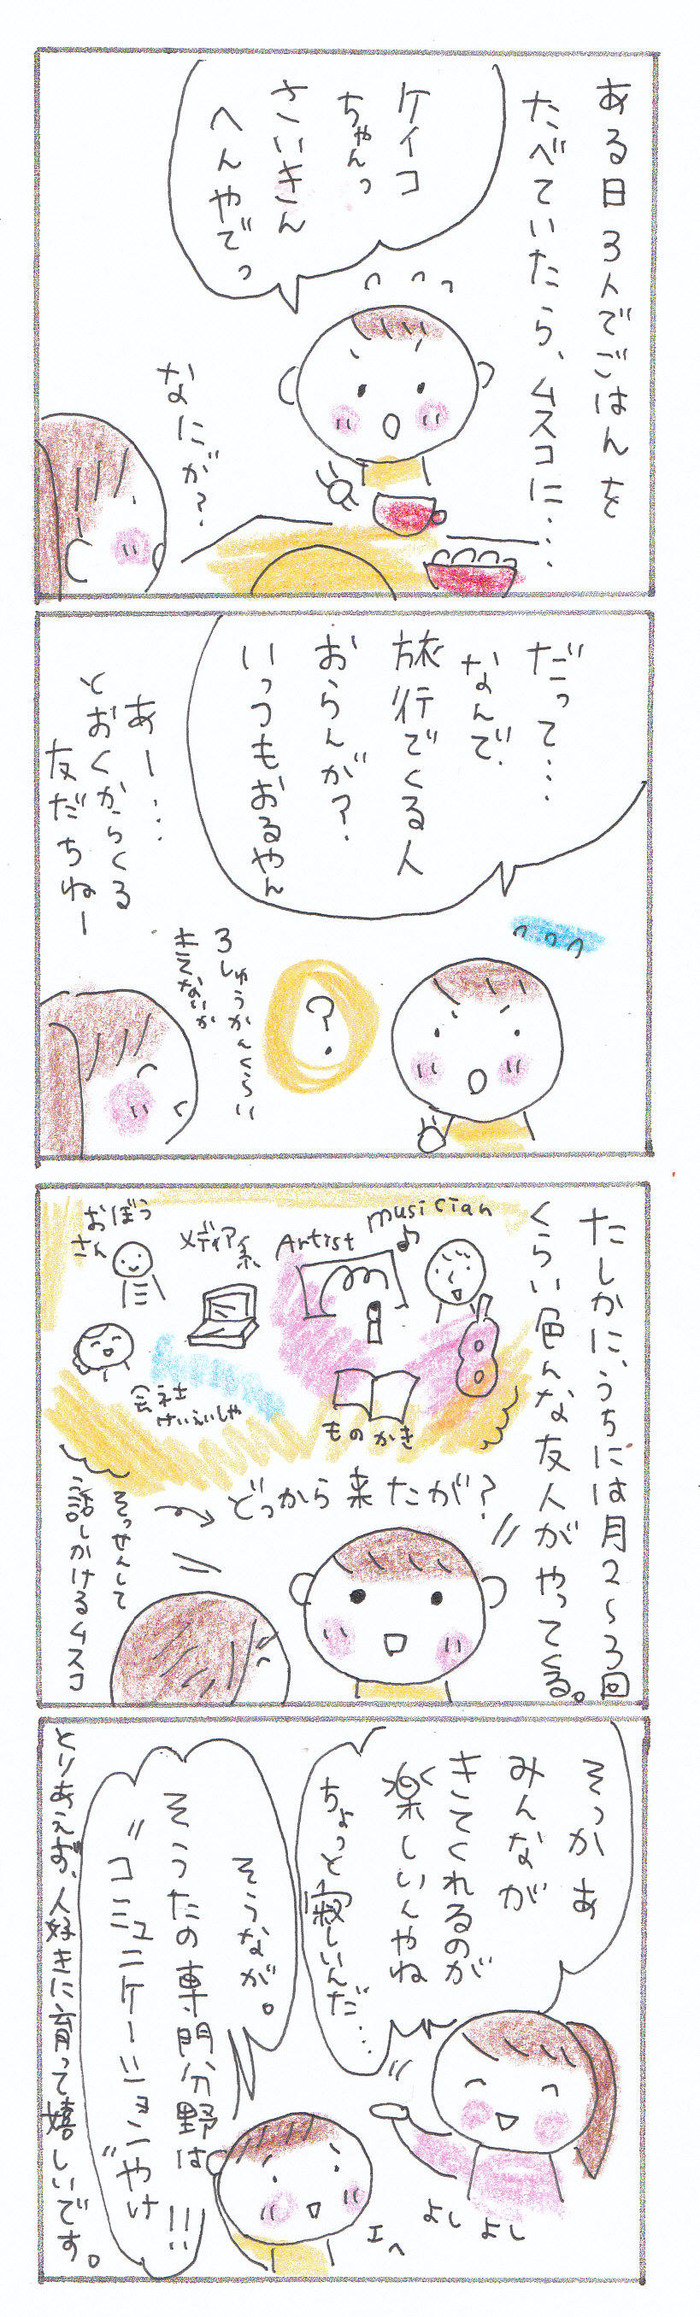 ある日3人でごはんを
たべていたら、ムスコに・・・
ケイコ
ちゃんっ
さいきん
へんやでっ
なにが？
だって・・・
なんで
旅行でくる人
おらんが？
いっつもおるやん
あー・・・
とおくからくる
友だちねー
?
3しゅうかんくらい
きてないか
たしかに、うちには月2〜3回
くらい色んな友人がやってくる。
musician
Artist
メディア系
おぼう
さん
会社
けいえいしゃ
ものかき
どっから来たが？
そっせんして
話しかけるムスコ
そっかぁ
みんなが
きてくれるのが
楽しいんやね
ちょっと寂しいんだ・・・
よし よし
そうなが。
そうたの専門分野は
"コミュニケーション"やけ!!!
エヘ
とりあえず、人好きに育って嬉しいです。